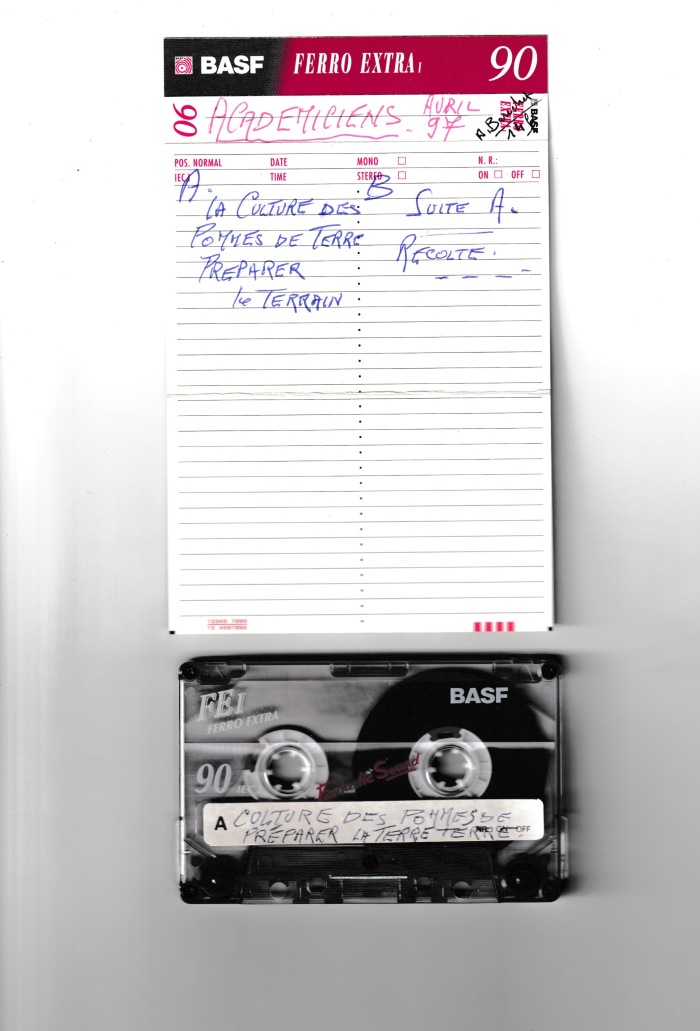 BASF FERRO EXTRA I 90
90 ACADEMICIENS. AVRIL 97
BASF
FERRO
EXTRA
POS. NORMAL DATE MONO N. R.:
IEC I TIME STEREO ON OFF
A. B
LA CULTURE DES SUITE A.
POMMES DE TERRE RECOLTE.
PREPARER
le TERRAIN
FE I BASF
FERRO EXTRA
90 IEC I
Ferromatic Sound
A CULTURE DES POMMES DE
PRÉPARER LA TERRE TERRE.
NR ON OFF